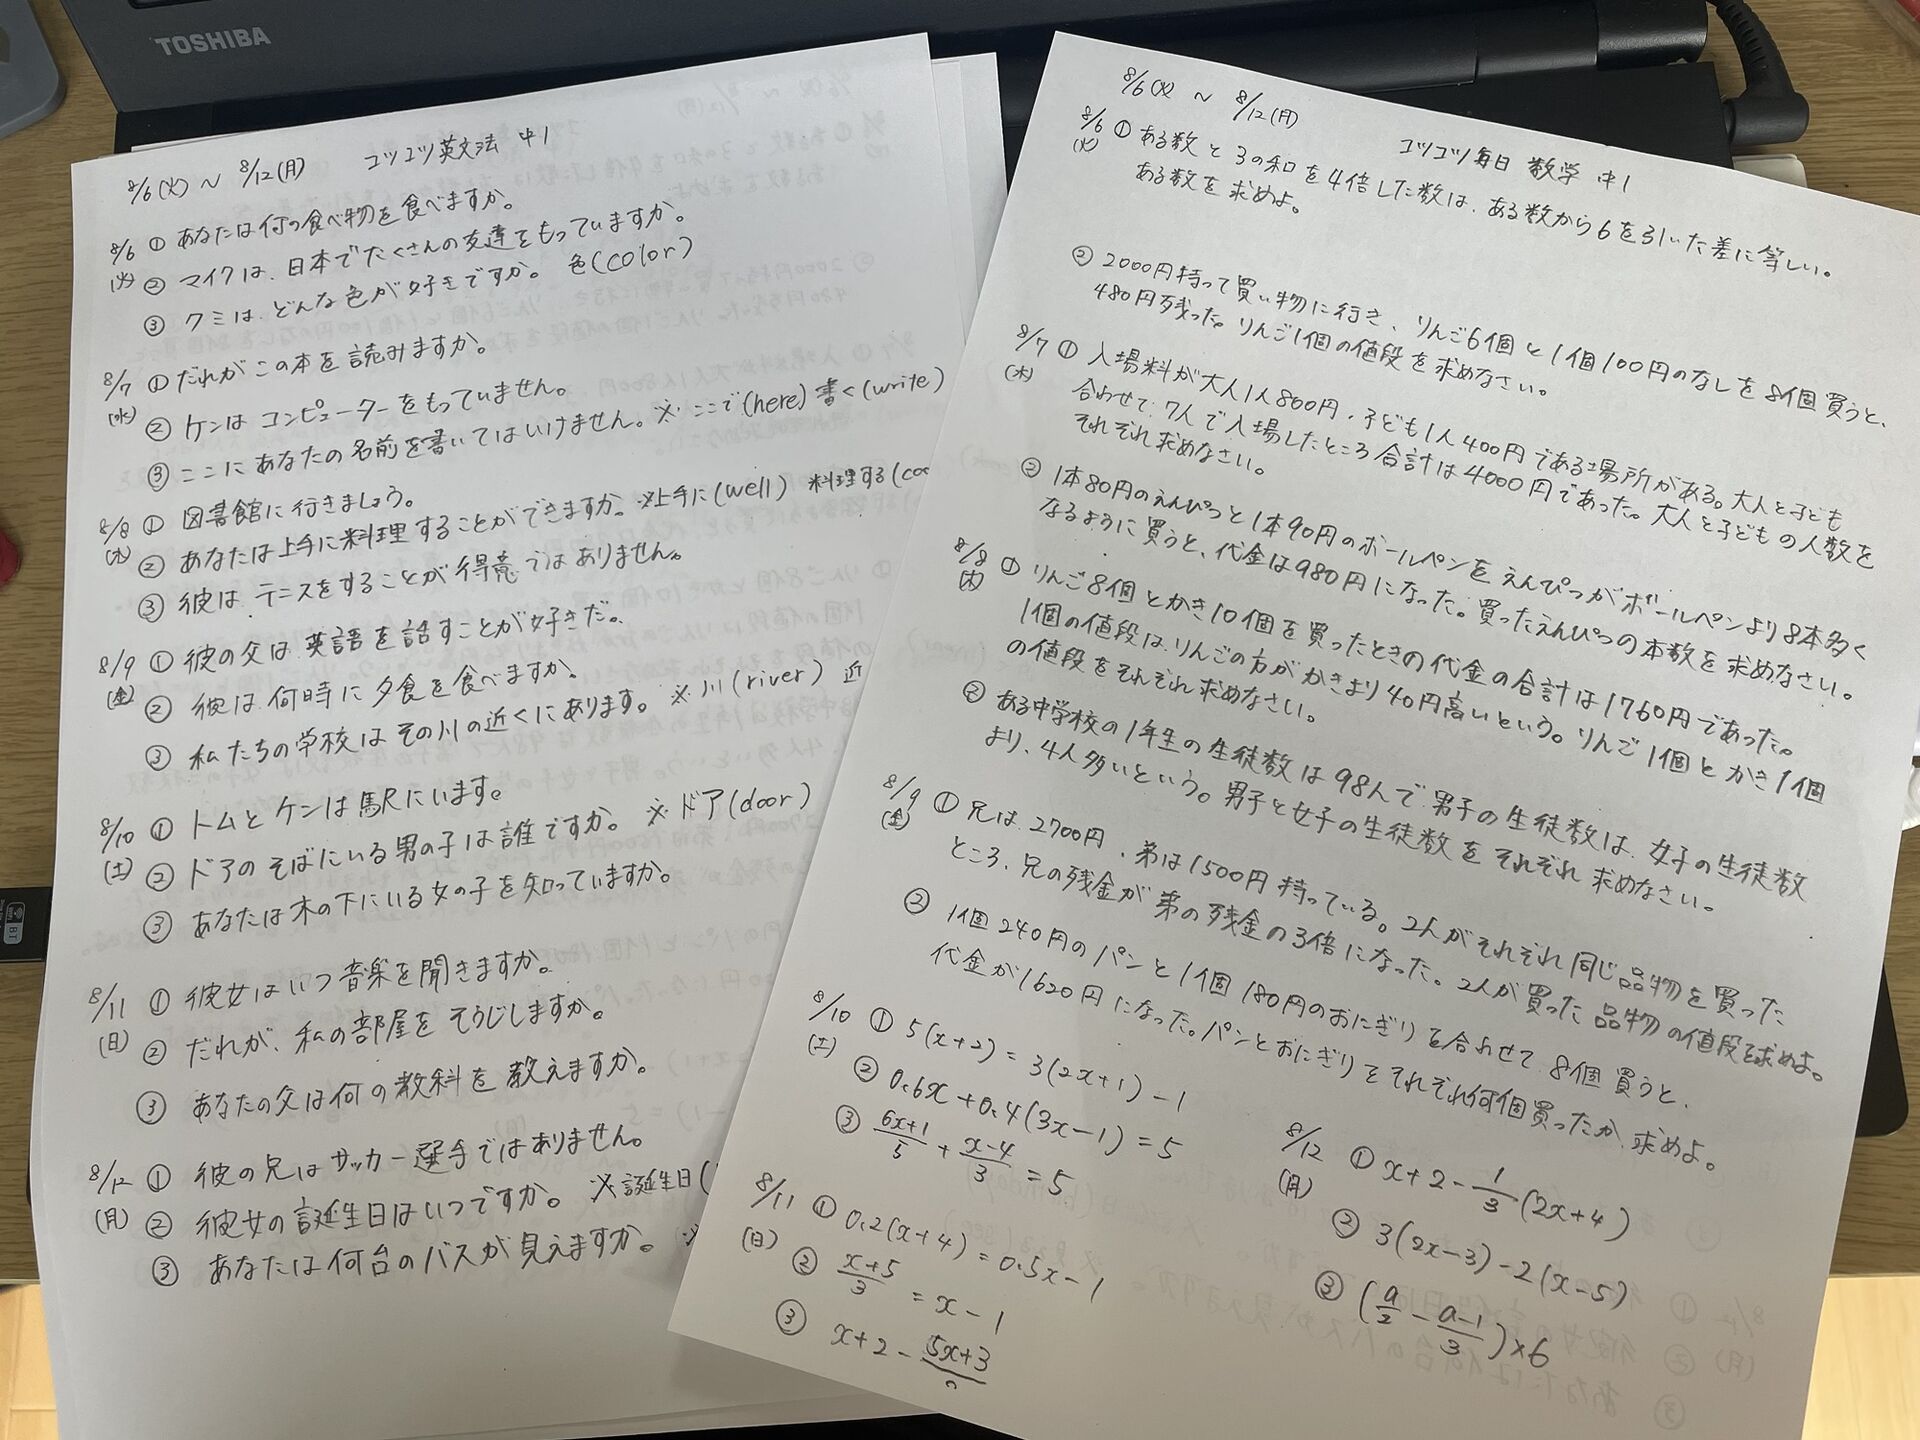 TOSHIBA
8/6(火) ~ 8/12(月) コツコツ英文法 中1
8/6 ① あなたは何の食べ物を食べますか。
(火) ② マイクは、日本でたくさんの友達をもっていますか。
③ クミは、どんな色が好きですか。 色(color)
8/7 ① だれがこの本を読みますか。
(水) ② ケンはコンピューターをもっていません。
③ ここにあなたの名前を書いてはいけません。※ここで(here) 書く(write)
8/8 ① 図書館に行きましょう。
(木) ② あなたは上手に料理することができますか。※上手に(well) 料理する(coo
③ 彼は、テニスをすることが得意ではありません。
8/9 ① 彼の父は、英語を話すことが好きだ。
(金) ② 彼は、何時に夕食を食べますか。
③ 私たちの学校はその川の近くにあります。 ※川(river) 近
8/10 ① トムとケンは駅にいます。
(土) ② ドアのそばにいる男の子は誰ですか。 ※ドア(door)
③ あなたは木の下にいる女の子を知っていますか。
8/11 ① 彼女はいつ音楽を聞きますか。
(日) ② だれが、私の部屋をそうじしますか。
③ あなたの父は何の教科を教えますか。
8/12 ① 彼の兄はサッカー選手ではありません。
(月) ② 彼女の誕生日はいつですか。 ※誕生日(
③ あなたは何台のバスが見えますか。 ※
8/6(火) ~ 8/12(月) コツコツ毎日 数学 中1
8/6 ① ある数と3の和を4倍した数は、ある数から6を引いた差に等しい。
(火) ある数を求めよ。
② 2000円持って買い物に行き、りんご6個と1個100円のなしを8個買うと、
480円残った。りんご1個の値段を求めなさい。
8/7 ① 入場料が大人1人800円、子ども1人400円である場所がある。大人と子ども
(水) 合わせて、7人で入場したところ合計は4000円であった。大人と子どもの人数を
それぞれ求めなさい。
② 1本80円のえんぴつと1本90円のボールペンをえんぴつがボールペンより8本多く
なるように買うと、代金は980円になった。買ったえんぴつの本数を求めなさい。
8/8 ① りんご8個とかき10個を買ったときの代金の合計は1760円であった。
(木) 1個の値段は、りんごの方がかきより40円高いという。りんご1個とかき1個
の値段をそれぞれ求めなさい。
② ある中学校の1年生の生徒数は98人で、男子の生徒数は、女子の生徒数
より、4人多いという。男子と女子の生徒数をそれぞれ求めなさい。
8/9 ① 兄は、2700円、弟は1500円持っている。2人がそれぞれ同じ品物を買った
(金) ところ、兄の残金が弟の残金の3倍になった。2人が買った品物の値段を求めよ。
② 1個240円のパンと1個180円のおにぎりを合わせて、8個買うと、
代金が1620円になった。パンとおにぎりをそれぞれ何個買ったか、求めよ。
8/10 ① 5(x+2)=3(2x+1)-1
(土) ② 0.6x+0.4(3x-1)=5
③ 6x+1/5 + x-4/3 =5
8/11 ① 0.2(x+4)=0.5x-1
(日) ② x+5/3 =x-1
③ x+2- 5x+3/
8/12 ① x+2- 1/3 (2x+4)
(月) ② 3(2x-3)-2(x-5)
③ (a/2 - a-1/3)×6